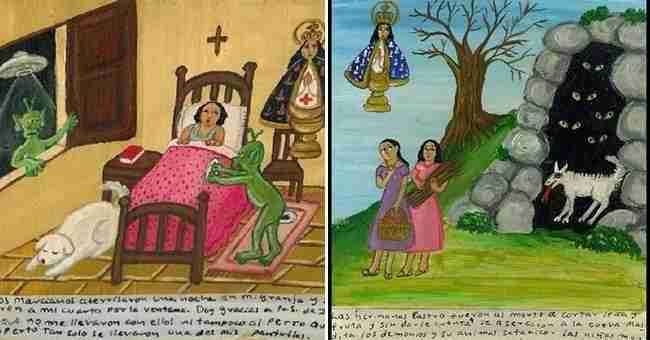 os marcianos aterrizaron una noche en mi granja y
ron a mi cuarto por la ventana. Doy gracias a la S. de
que no me llevaron con ellos ni tampoco al perro
Tan solo se llevaron una de mis pantuflas.
Las hermanas Castro fueron al monte a cortar leña y
fruta y sin darse cuenta se
a la cueva
los demonios y su animal satanico. las niñas